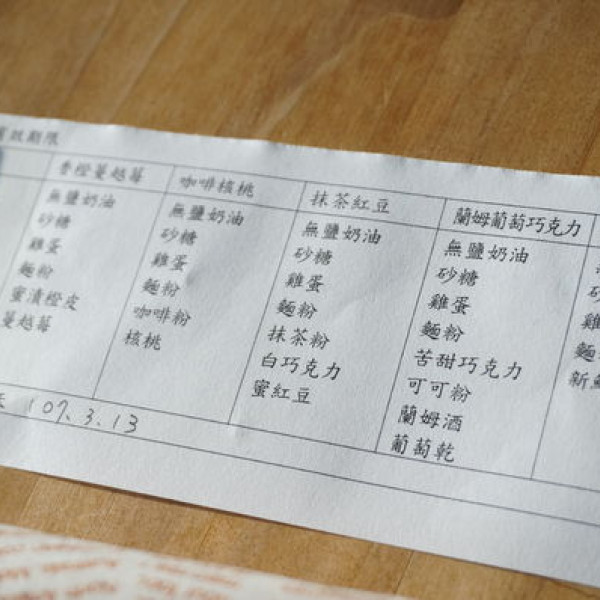 期限
香橙蔓越莓
無鹽奶油
砂糖
雞蛋
麵粉
蜜漬橙皮
蔓越莓
咖啡核桃
無鹽奶油
砂糖
雞蛋
麵粉
咖啡粉
核桃
抹茶紅豆
無鹽奶油
砂糖
雞蛋
麵粉
抹茶粉
白巧克力
蜜紅豆
蘭姆葡萄巧克力
無鹽奶油
砂糖
雞蛋
麵粉
苦甜巧克力
可可粉
蘭姆酒
葡萄乾
107.3.13